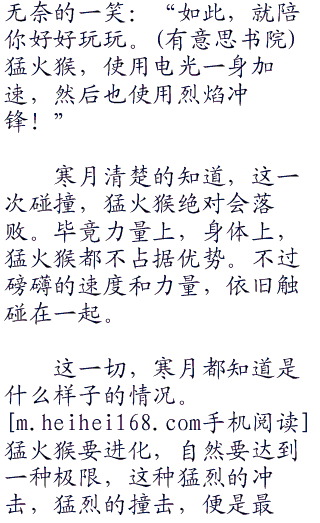 无奈的一笑：“如此，就陪
你好好玩玩。(有意思书院)
猛火猴，使用电光一身加
速，然后也使用烈焰冲
锋！”
寒月清楚的知道，这一
次碰撞，猛火猴绝对会落
败。毕竟力量上，身体上，
猛火猴都不占据优势。不过
磅礴的速度和力量，依旧触
碰在一起。
这一切，寒月都知道是
什么样子的情况。
[m.heihei168.com手机阅读]
猛火猴要进化，自然要达到
一种极限，这种猛烈的冲
击，猛烈的撞击，便是最